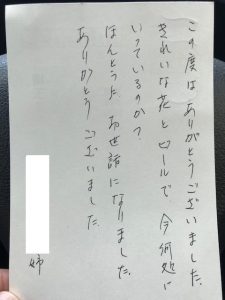 この度は ありがとうございました。
きれいな花とロールで、今何処に
いっているのか？
ほんとうに お世話になりました。
ありがとうございました。
姉